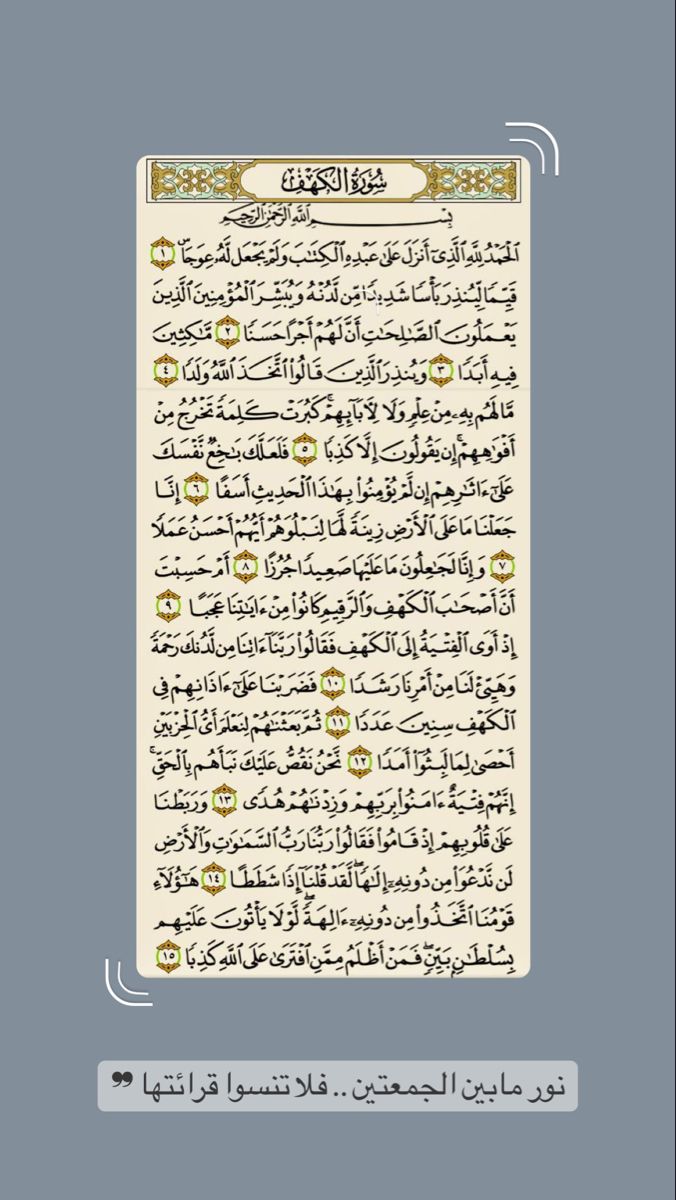 سُورَةُ الكَهْفِ
بِسْمِ اللَّهِ الرَّحْمَٰنِ الرَّحِيمِ
ٱلْحَمْدُ لِلَّهِ ٱلَّذِىٓ أَنزَلَ عَلَىٰ عَبْدِهِ ٱلْكِتَٰبَ وَلَمْ يَجْعَل لَّهُۥ عِوَجَاۜ ١
قَيِّمًا لِّيُنذِرَ بَأْسًا شَدِيدًا مِّن لَّدُنْهُ وَيُبَشِّرَ ٱلْمُؤْمِنِينَ ٱلَّذِينَ
يَعْمَلُونَ ٱلصَّٰلِحَٰتِ أَنَّ لَهُمْ أَجْرًا حَسَنًا ٢ مَّٰكِثِينَ
فِيهِ أَبَدًا ٣ وَيُنذِرَ ٱلَّذِينَ قَالُوا۟ ٱتَّخَذَ ٱللَّهُ وَلَدًا ٤
مَّا لَهُم بِهِۦ مِنْ عِلْمٍ وَلَا لِءَابَآئِهِمْ ۚ كَبُرَتْ كَلِمَةً تَخْرُجُ مِنْ
أَفْوَٰهِهِمْ ۚ إِن يَقُولُونَ إِلَّا كَذِبًا ٥ فَلَعَلَّكَ بَٰخِعٌ نَّفْسَكَ
عَلَىٰٓ ءَاثَٰرِهِمْ إِن لَّمْ يُؤْمِنُوا۟ بِهَٰذَا ٱلْحَدِيثِ أَسَفًا ٦ إِنَّا
جَعَلْنَا مَا عَلَى ٱلْأَرْضِ زِينَةً لَّهَا لِنَبْلُوَهُمْ أَيُّهُمْ أَحْسَنُ عَمَلًا
٧ وَإِنَّا لَجَٰعِلُونَ مَا عَلَيْهَا صَعِيدًا جُرُزًا ٨ أَمْ حَسِبْتَ
أَنَّ أَصْحَٰبَ ٱلْكَهْفِ وَٱلرَّقِيمِ كَانُوا۟ مِنْ ءَايَٰتِنَا عَجَبًا ٩
إِذْ أَوَى ٱلْفِتْيَةُ إِلَى ٱلْكَهْفِ فَقَالُوا۟ رَبَّنَآ ءَاتِنَا مِن لَّدُنكَ رَحْمَةً
وَهَيِّئْ لَنَا مِنْ أَمْرِنَا رَشَدًا ١٠ فَضَرَبْنَا عَلَىٰٓ ءَاذَانِهِمْ فِى
ٱلْكَهْفِ سِنِينَ عَدَدًا ١١ ثُمَّ بَعَثْنَٰهُمْ لِنَعْلَمَ أَىُّ ٱلْحِزْبَيْنِ
أَحْصَىٰ لِمَا لَبِثُوٓا۟ أَمَدًا ١٢ نَّحْنُ نَقُصُّ عَلَيْكَ نَبَأَهُم بِٱلْحَقِّ ۚ
إِنَّهُمْ فِتْيَةٌ ءَامَنُوا۟ بِرَبِّهِمْ وَزِدْنَٰهُمْ هُدًى ١٣ وَرَبَطْنَا
عَلَىٰ قُلُوبِهِمْ إِذْ قَامُوا۟ فَقَالُوا۟ رَبُّنَا رَبُّ ٱلسَّمَٰوَٰتِ وَٱلْأَرْضِ
لَن نَّدْعُوَا۟ مِن دُونِهِۦٓ إِلَٰهًا ۖ لَّقَدْ قُلْنَآ إِذًا شَطَطًا ١٤ هَٰٓؤُلَآءِ
قَوْمُنَا ٱتَّخَذُوا۟ مِن دُونِهِۦٓ ءَالِهَةً ۖ لَّوْلَا يَأْتُونَ عَلَيْهِم
بِسُلْطَٰنٍۭ بَيِّنٍ ۖ فَمَنْ أَظْلَمُ مِمَّنِ ٱفْتَرَىٰ عَلَى ٱللَّهِ كَذِبًا ١٥
نور مابين الجمعتين .. فلا تنسوا قرائتها ❞